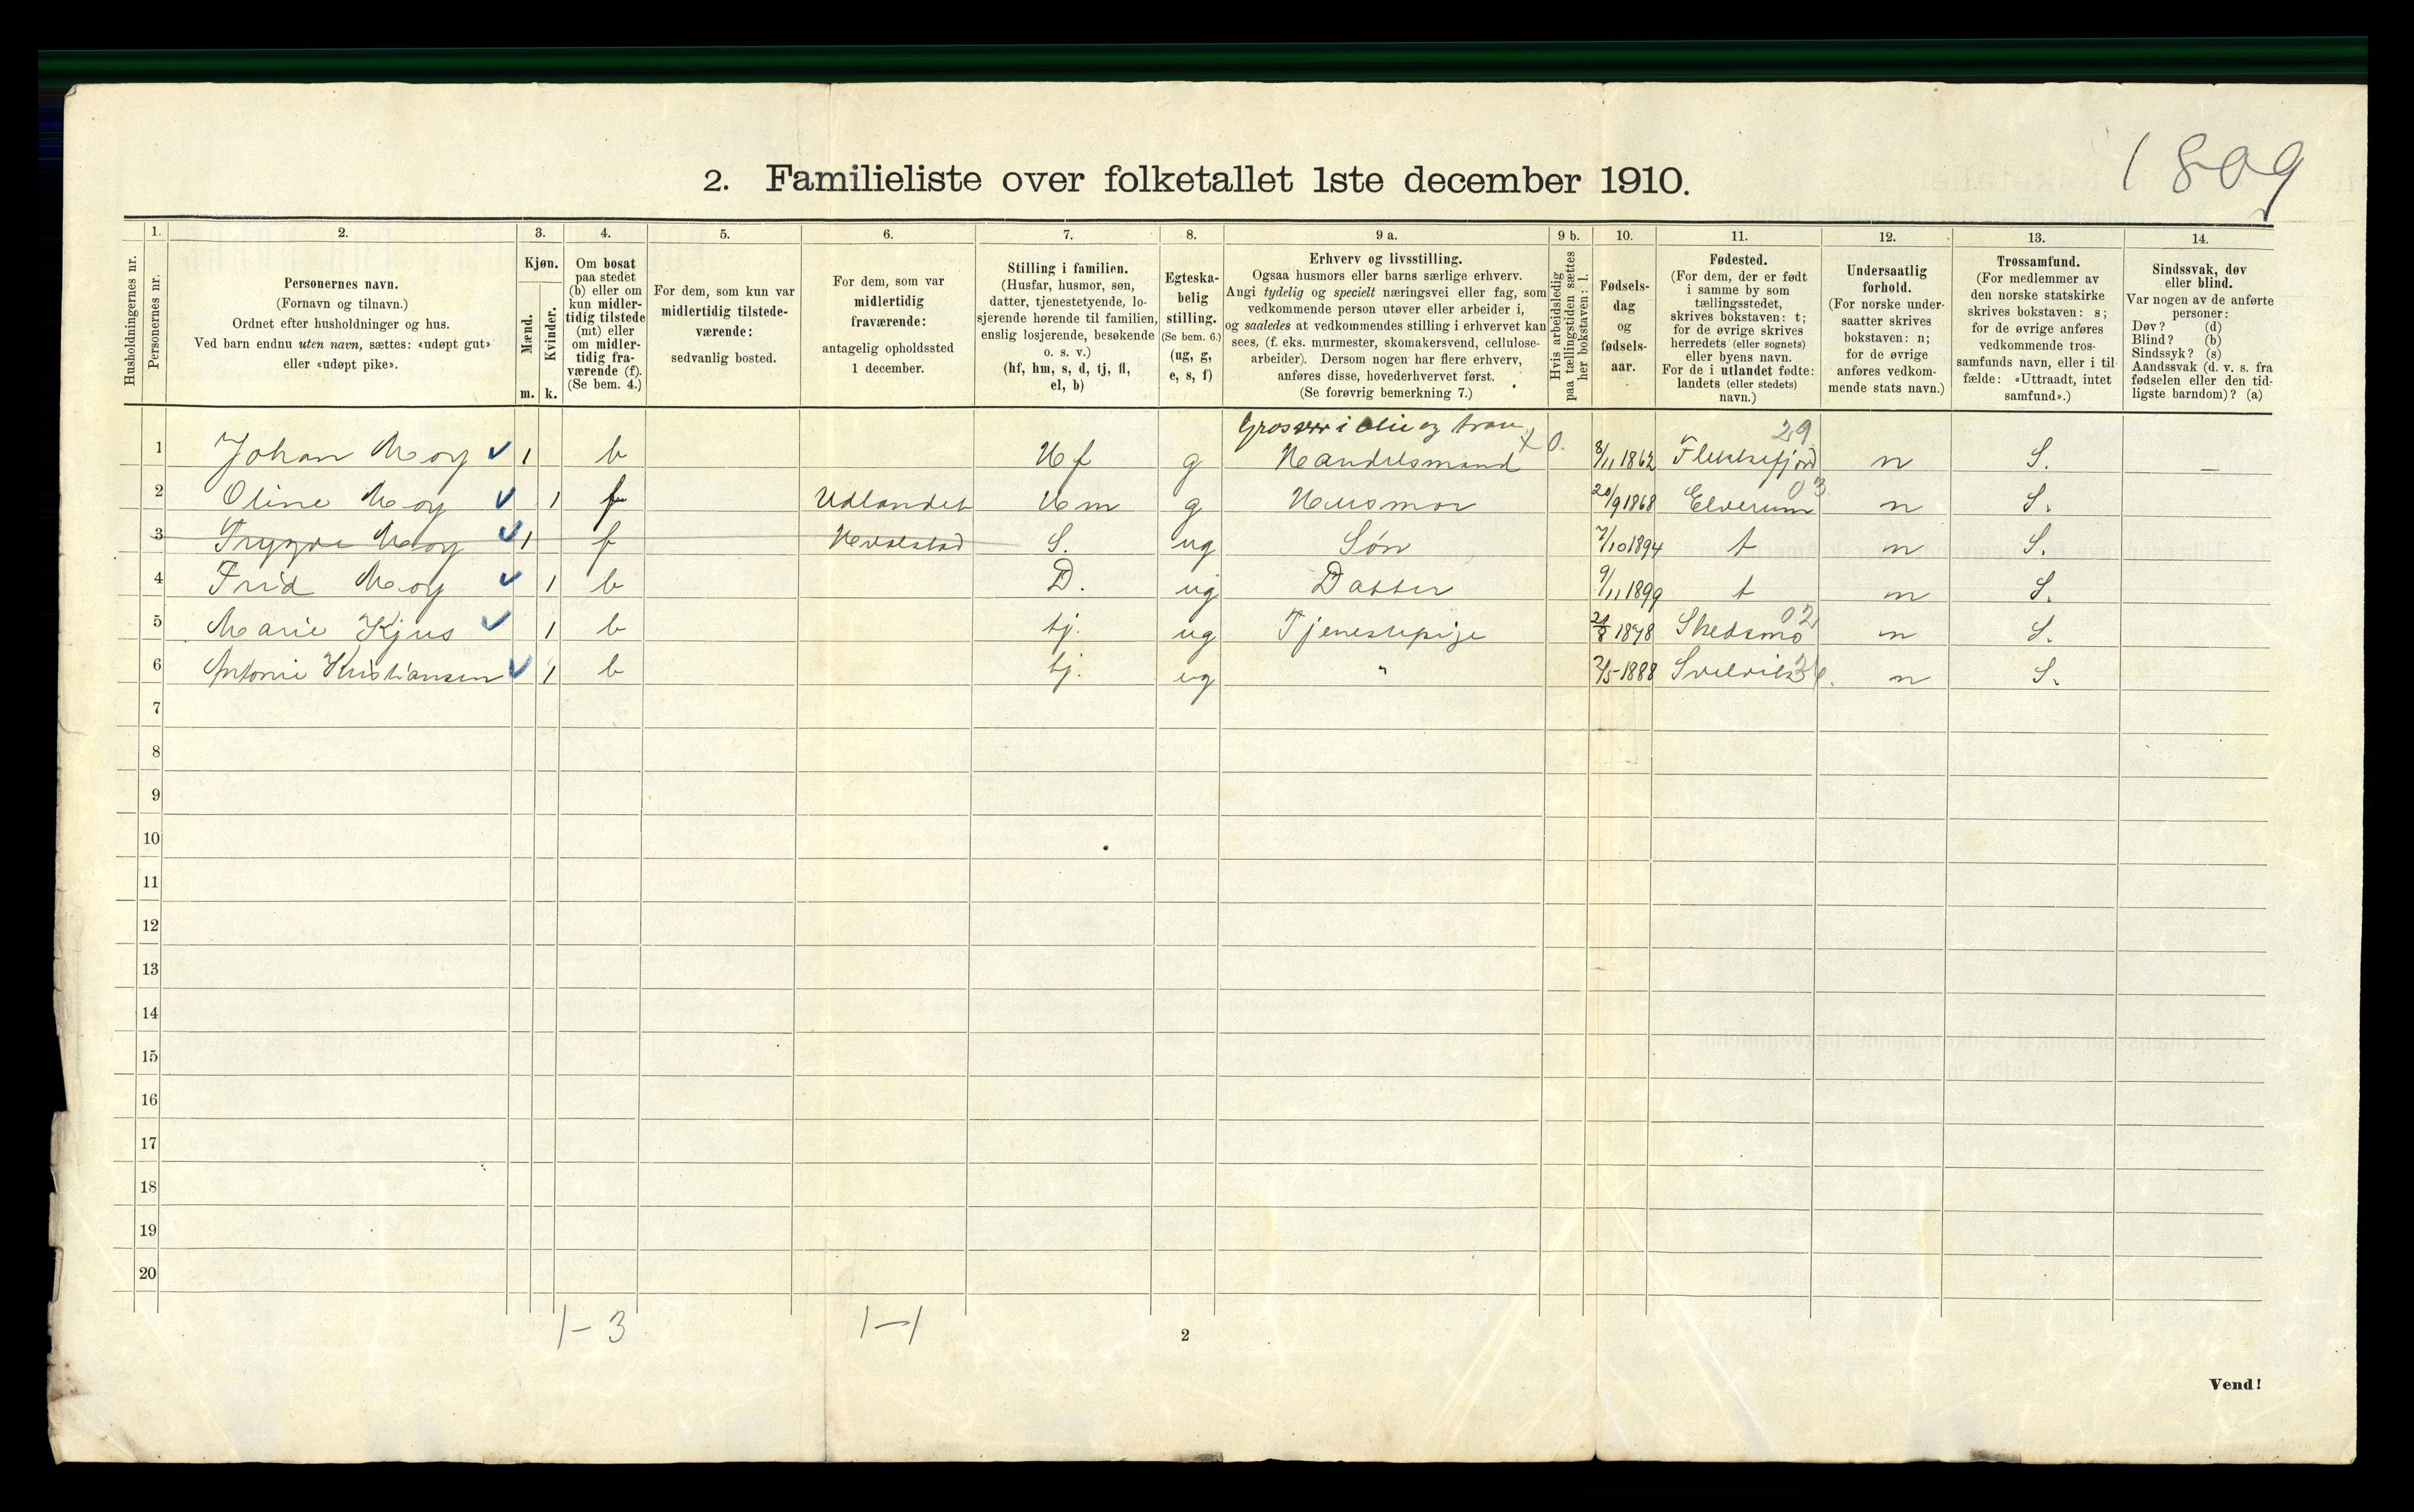 1809
2. Familieliste over folketallet 1ste december 1910.
Husholdningernes nr.
1. Personernes nr.
2.
Personernes navn.
(Fornavn og tilnavn.)
Ordnet efter husholdninger og hus.
Ved barn endnu uten navn, sættes: «udøpt gut»
eller «udøpt pike».
3.
Kjøn.
Mænd. Kvinder.
m. k.
4.
Om bosat
paa stedet
(b) eller om
kun midler-
tidig tilstede
(mt) eller
om midler-
tidig fra-
værende (f).
(Se bem. 4.)
5.
For dem, som kun var
midlertidig tilstede-
værende:
sedvanlig bosted.
6.
For dem, som var
midlertidig
fraværende:
antagelig opholdssted
1 december.
7.
Stilling i familien.
(Husfar, husmor, søn,
datter, tjenestetyende, lo-
sjerende hørende til familien,
enslig losjerende, besøkende
o. s. v.)
(hf, hm, s, d, tj, fl,
el, b)
8.
Egteska-
belig
stilling.
(Se bem. 6.)
(ug, g,
e, s, f)
9 a.
Erhverv og livsstilling.
Ogsaa husmors eller barns særlige erhverv.
Angi tydelig og specielt næringsvei eller fag, som
vedkommende person utøver eller arbeider i,
og saaledes at vedkommendes stilling i erhvervet kan
sees, (f. eks. murmester, skomakersvend, cellulose-
arbeider). Dersom nogen har flere erhverv,
anføres disse, hovederhvervet først.
(Se forøvrig bemerkning 7.)
9 b.
Hvis arbeidsledig
paa tællingstiden sættes
her bokstaven: l.
10.
Fødsels-
dag
og
fødsels-
aar.
11.
Fødested.
(For dem, der er født
i samme by som
tællingsstedet,
skrives bokstaven: t;
for de øvrige skrives
herredets (eller sognets)
eller byens navn.
For de i utlandet fødte:
landets (eller stedets)
navn.)
12.
Undersaatlig
forhold.
(For norske under-
saatter skrives
bokstaven: n;
for de øvrige
anføres vedkom-
mende stats navn.)
13.
Trossamfund.
(For medlemmer av
den norske statskirke
skrives bokstaven: s;
for de øvrige anføres
vedkommende tros-
samfunds navn, eller i til-
fælde: «Uttraadt, intet
samfund».)
14.
Sindssvak, døv
eller blind.
Var nogen av de anførte
personer:
Døv? (d)
Blind? (b)
Sindssyk? (s)
Aandssvak (d. v. s. fra
fødselen eller den tid-
ligste barndom)? (a)
Grosserer i olie og tran 29
1 Johan Moy 1 b Hf g Handelsmand x 0. 8/11 1862 Flekkefjord n S. –
2 Oline Moy 1 f Udlandet Hm g Husmor 20/9 1868 Elverum 03 n S.
3 Trygve Moy 1 f Hvalstad S. ug Søn 7/10 1894 t n S.
4 Frid Moy 1 b D. ug Datter 9/11 1899 t n S.
5 Marie Kjus 1 b tj. ug Tjenestepige 1878 Skedsmo 02 n S.
6 Antonie Kristiansen 1 b tj. ug " 2/5 1888 Svelvik n S.
7
8
9
10
11
12
13
14
15
16
17
18
19
20
1–3 1–1
2
Vend!